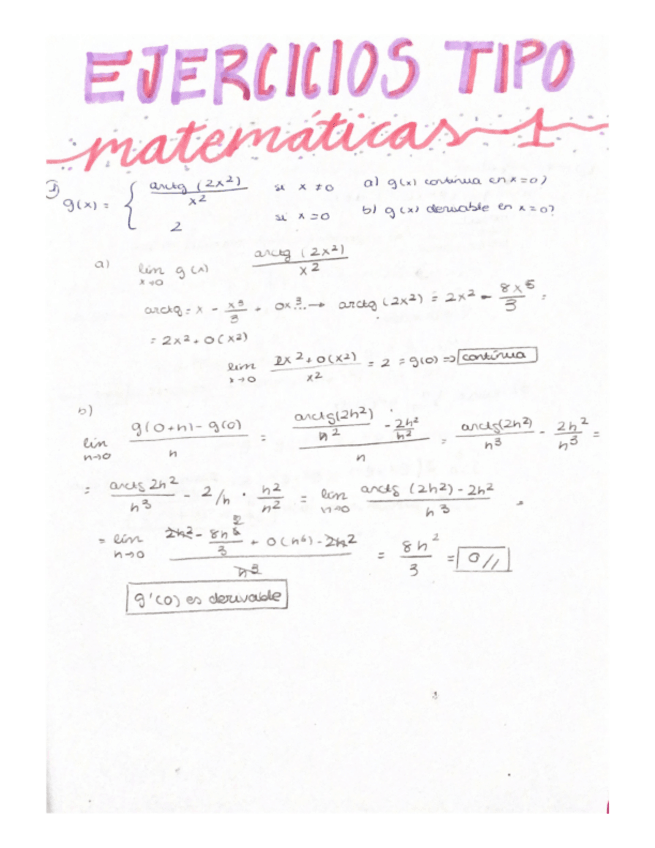 EJERCICIOS TIPO
matemáticas 1
1) g(x) = { arctg (2x²) / x² si x ≠ 0 a) g(x) continua en x=0?
2 si x = 0 b) g(x) derivable en x=0?
a) lim x→0 g(x) arctg (2x²) / x²
arctg = x - x³/3 + 0x³... → arctg (2x²) = 2x² - 8x⁶/3 =
= 2x² + 0(x²)
lim x→0 2x² + 0(x²) / x² = 2 = g(0) ⇒ continua
b) lim h→0 g(0+h) - g(0) / h = arctg(2h²)/h² - 2h²/h² / h = arctg(2h²) / h³ - 2h²/h³ =
= arctg 2h² / h³ - 2/h · h²/h² = lim h→0 arctg (2h²) - 2h² / h³ =
= lim h→0 2h² - 8h⁶/3 + 0(h⁶) - 2h² / h³ = 8h²/3 = 0//
g'(0) es derivable